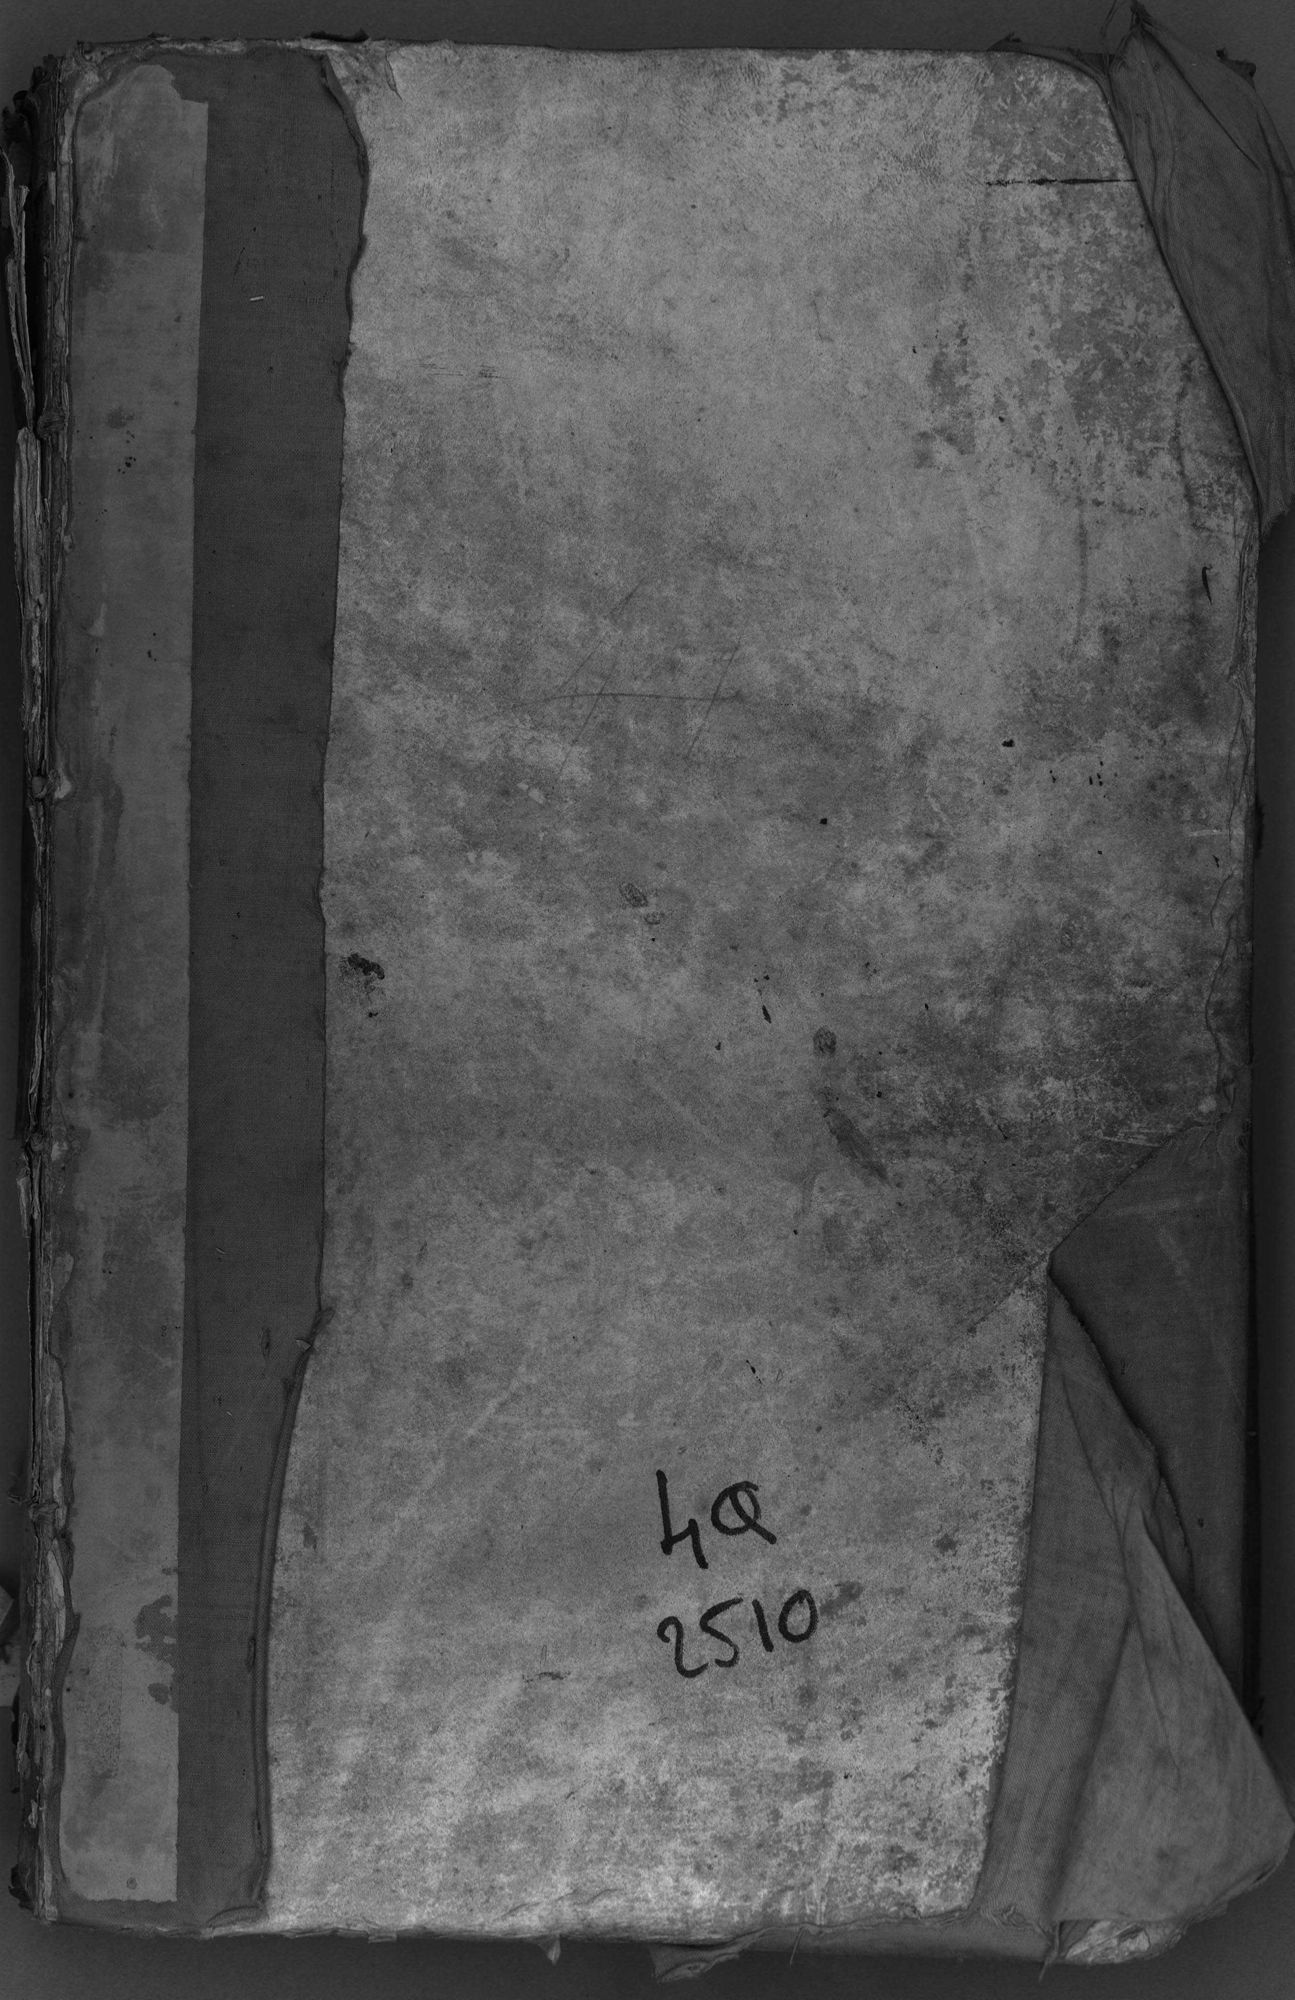 4Q
2510